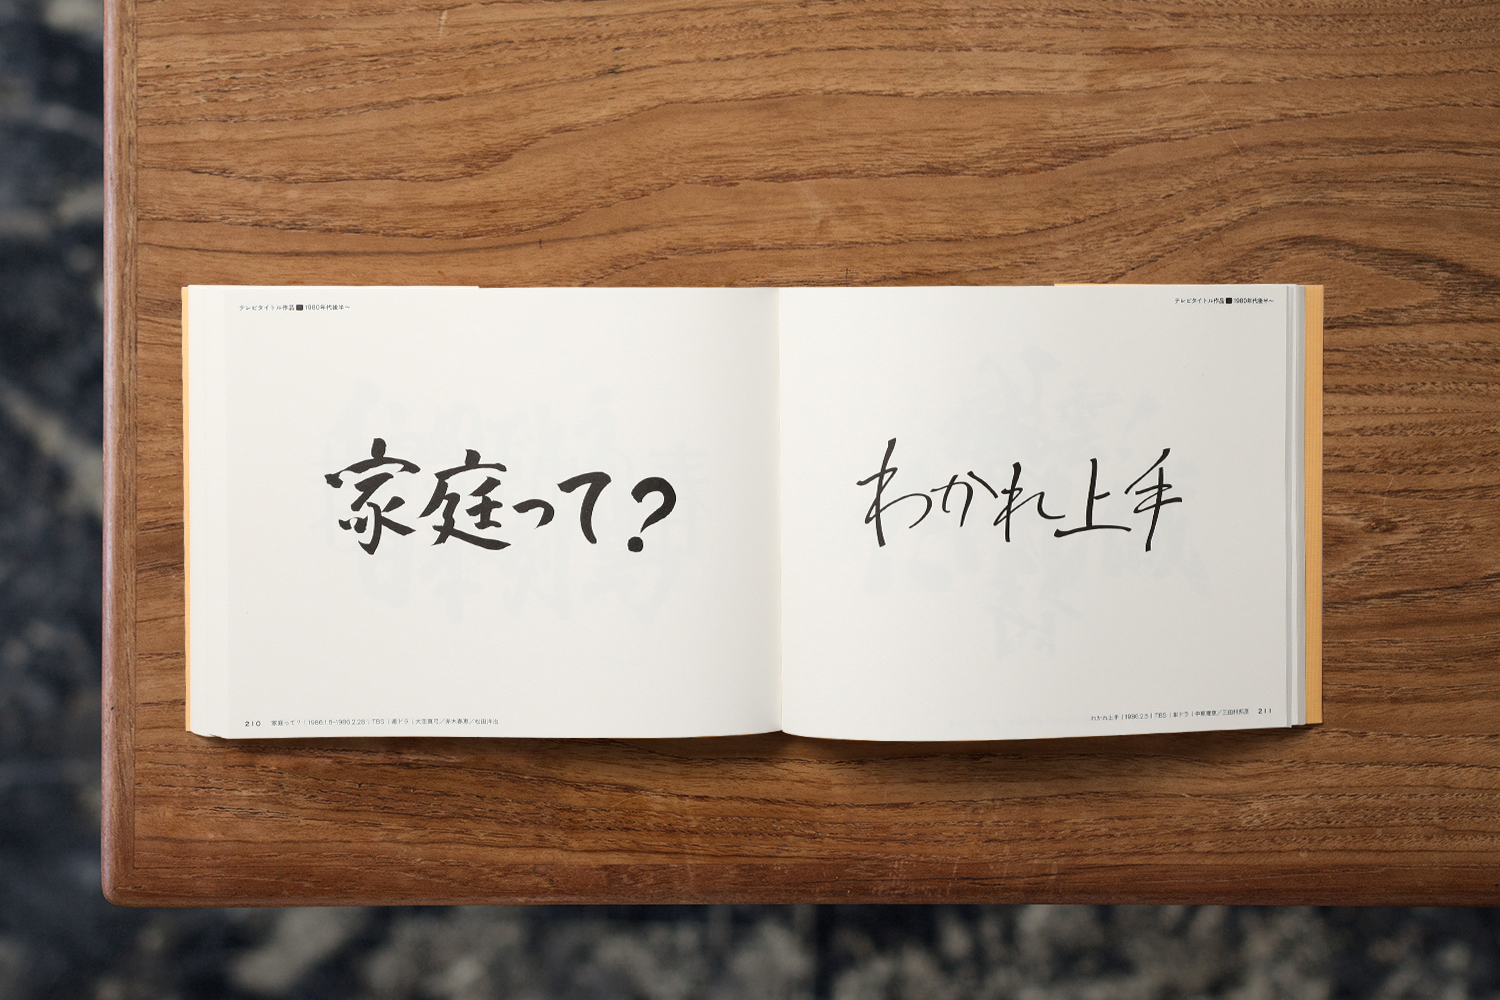 テレビタイトル作品■1980年代後半〜
家庭って？
210 家庭って？｜1986.1.6-1986.2.28｜TBS｜昼ドラ｜
テレビタイトル作品■1980年代後半〜
わかれ上手
わかれ上手｜1986.2.5｜TBS｜ 211